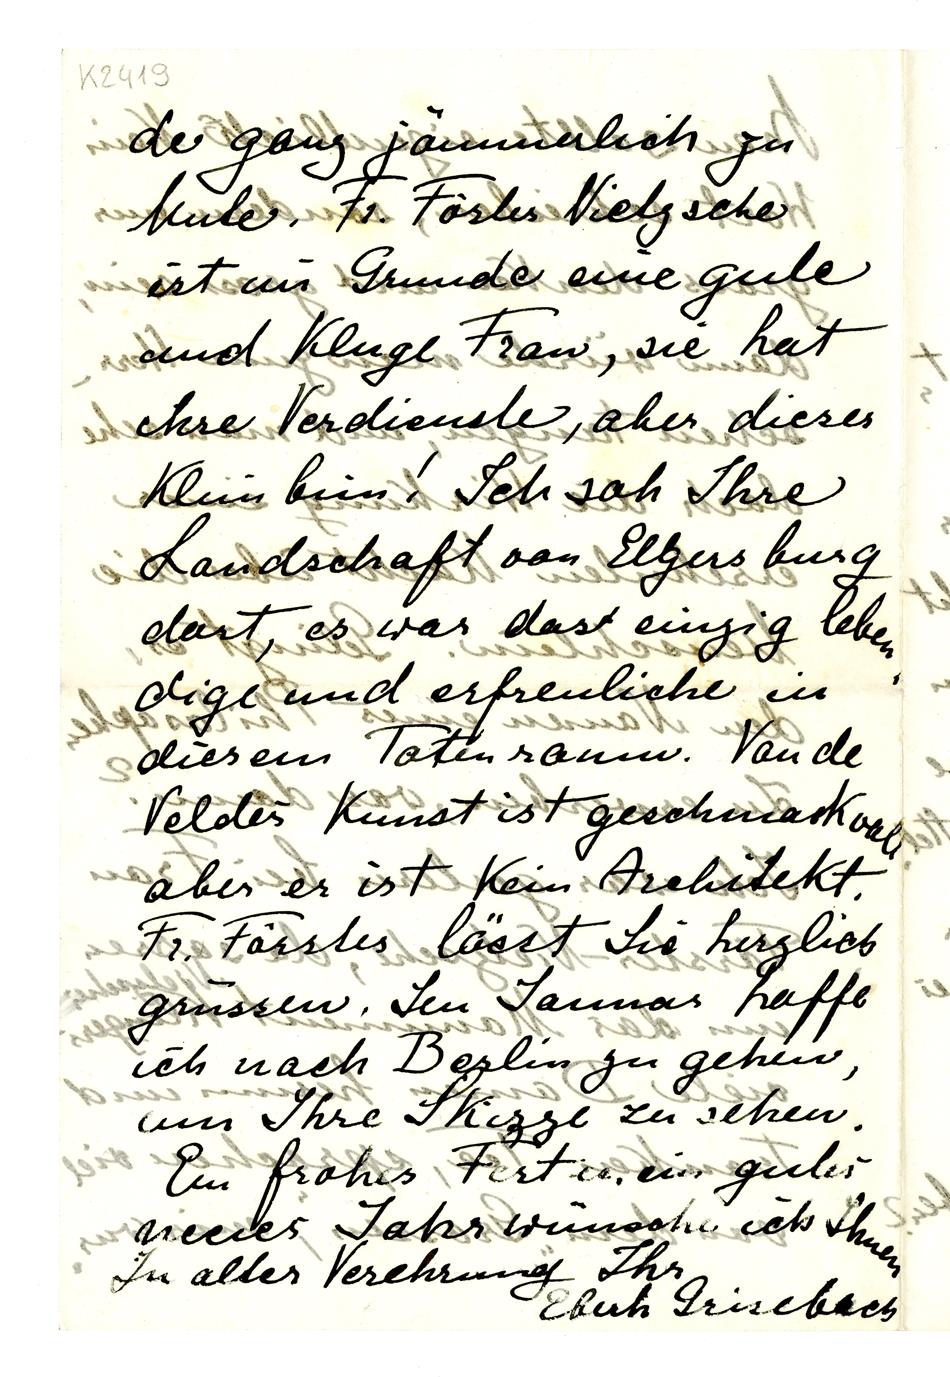 K2419
de ganz jämmerlich zu
Mute. Fr. Förster Nietzsche
ist im Grunde eine gute
und kluge Frau, sie hat
ihre Verdienste, aber dieses
Klimbim! Ich sah Ihre
Landschaft von Elgersburg
dort, es war das einzig leben
dige und erfreuliche in
diesem Totenraum. Van de
Veldes Kunst ist geschmackvoll
aber er ist kein Architekt.
Fr. Förster lässt Sie herzlich
grüssen. Im Januar hoffe
ich nach Berlin zu gehen,
um Ihre Skizze zu sehen.
Ein frohes Fest u. ein gutes
neues Jahr wünsche ich Ihnen
In alter Verehrung Ihr
Eberh Grisebach